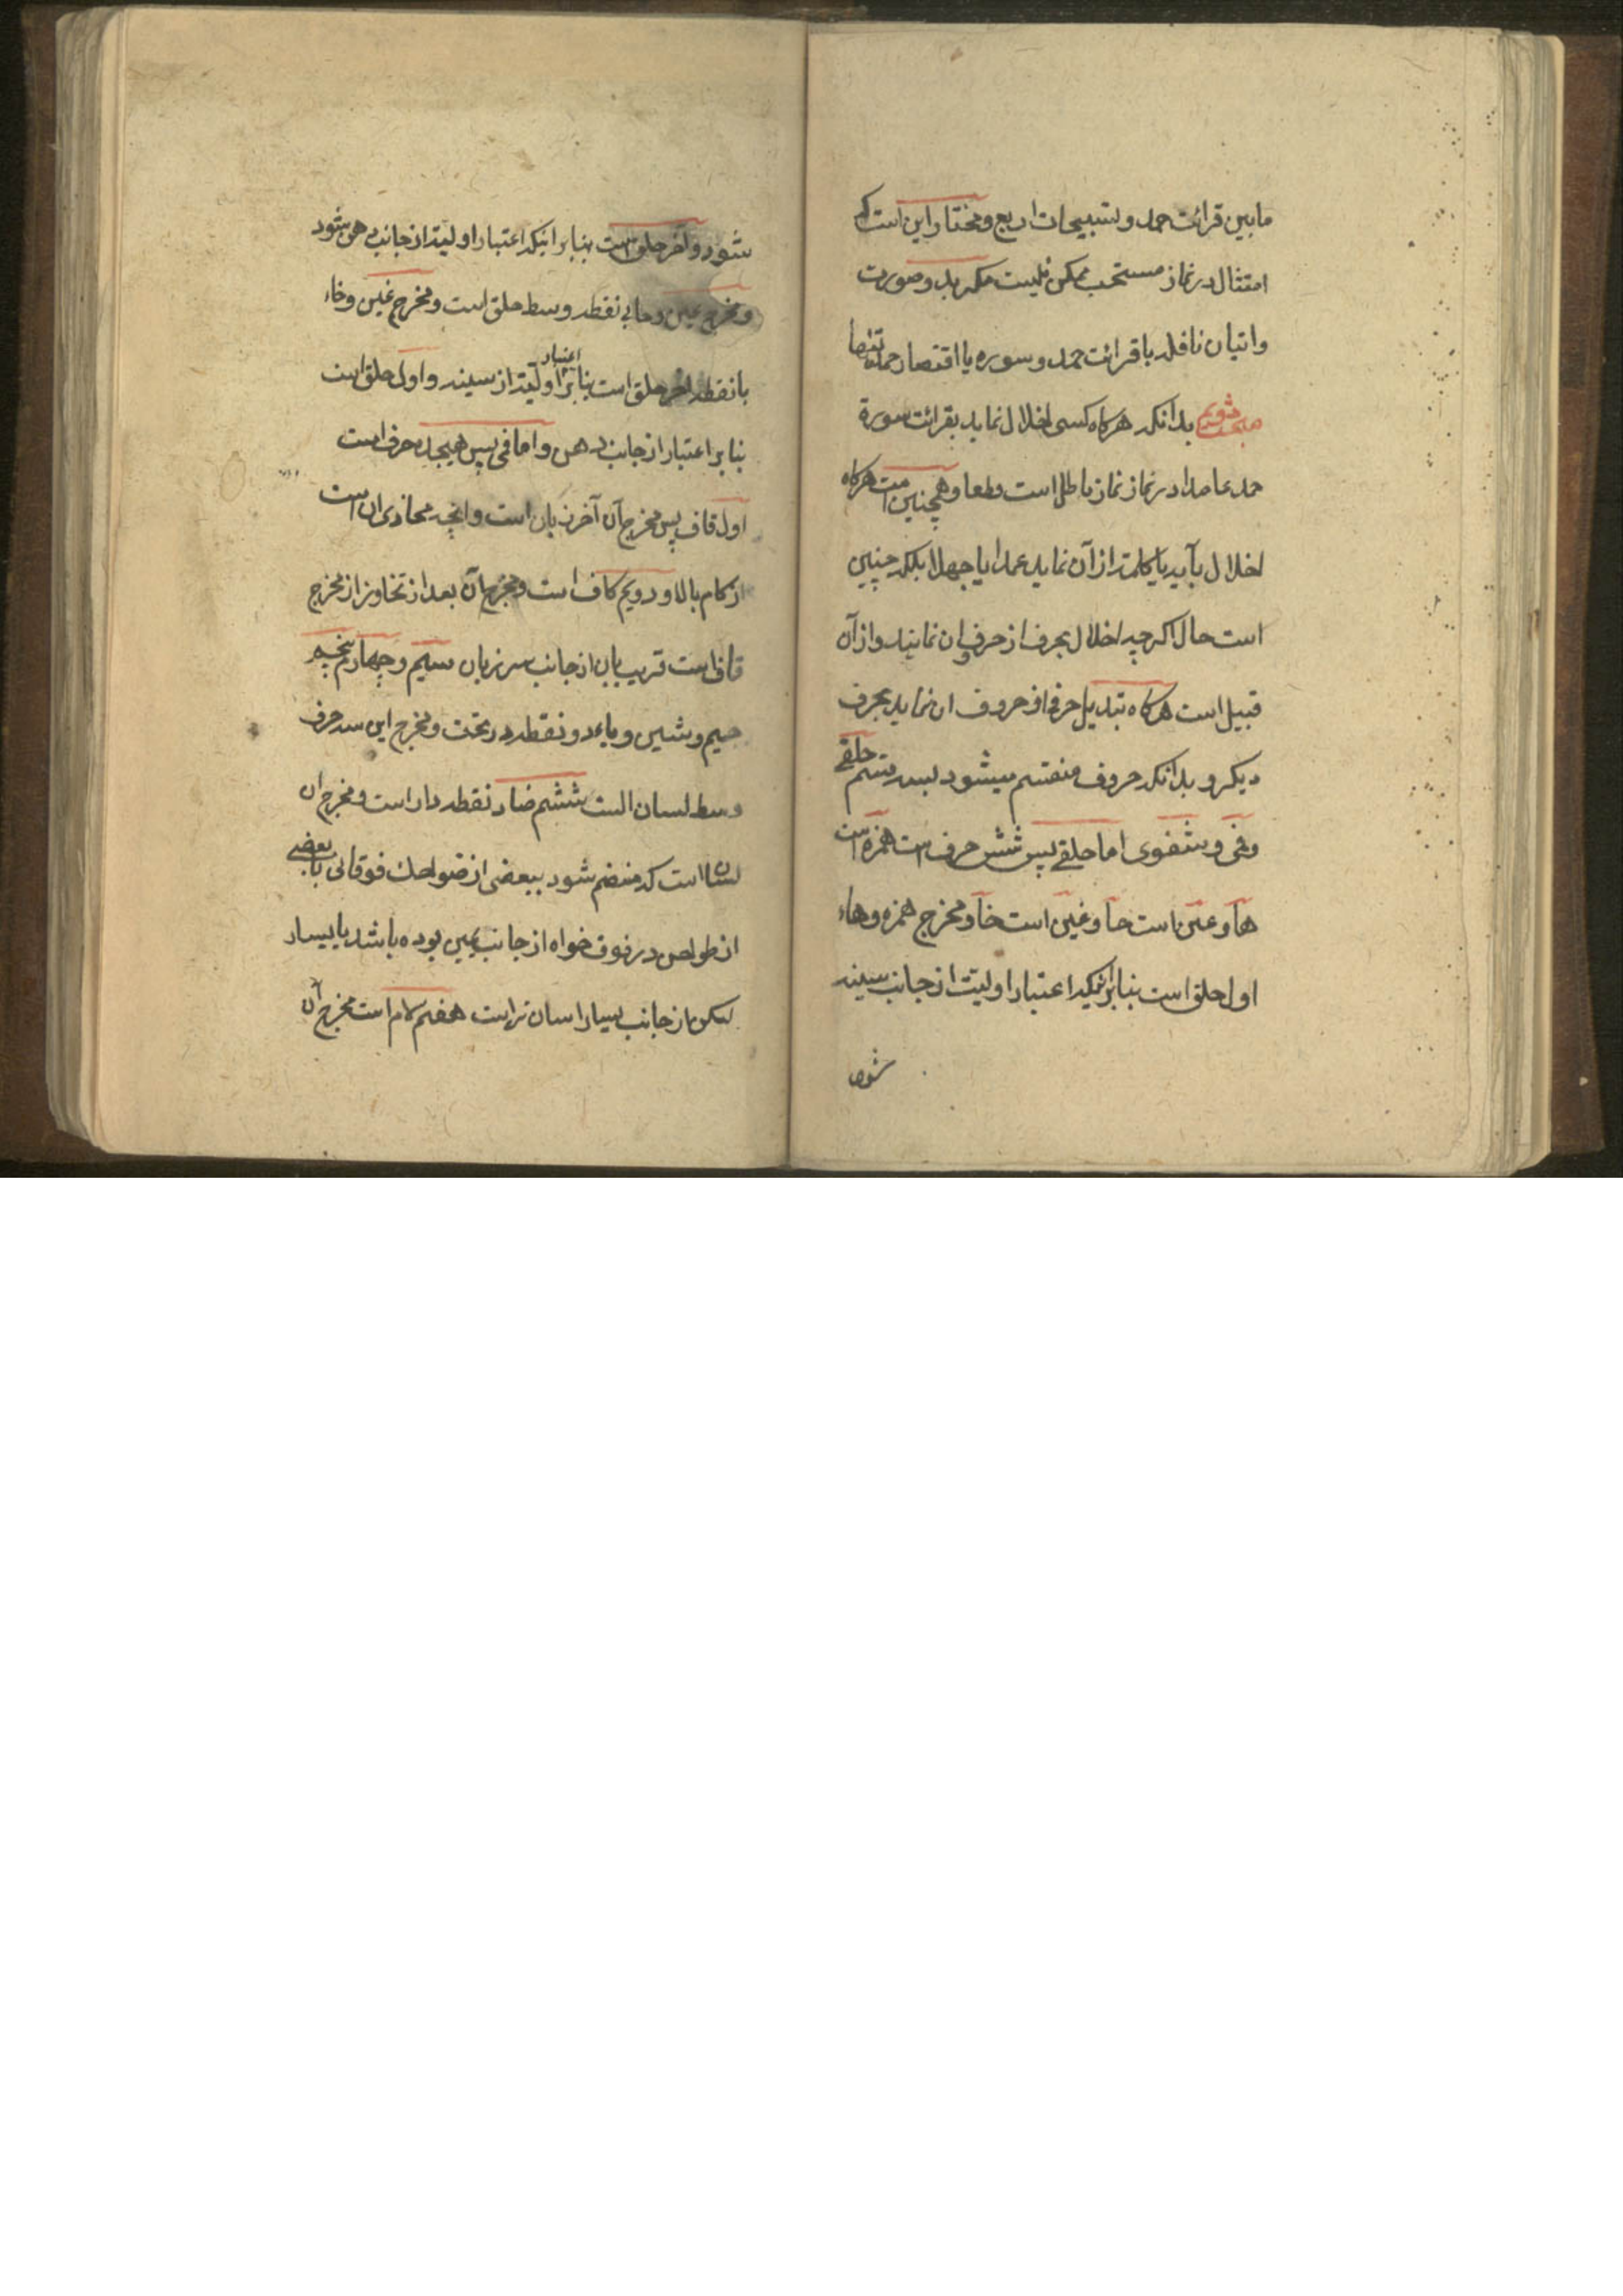 مابین قرائت حمد و تسبیحات اربع و مختار این است که
امتثال در نماز مستحب ممکن نیست مکر بد و صورت
و اتیان نافله با قرائت حمد و سوره یا اقتصار حمد تنها
مبحث دویم بدانکه هرکاه کسی اخلال نماید بقرائت سورة
حمد عامدا در نماز نماز باطل است قطعا و همچنین است هرکاه
اخلال بآیه یا کلمه از آن نماید عمدا یا جهلا بلکه چنین
است حال اکرچه اخلال بحرف از حروف ان نماید و از آن
قبیل است هرکاه تبدیل حرفی از حروف ان نماید بحرف
دیکر و بدانکه حروف منقسم میشود بسه قسم حلقے
و فمی و شفوی اما حلقے پس شش حرف است همزه است
هآ و عین است حآ و غین است خآ و مخرج همزه و هاء
اول حلق است بنابر انیکه اعتبار اولیت از جانب سینه
شود
شود و آخر حلق است بنابر انیکه اعتبار اولیت از جانب دهن شود
و مخرج عین و حا بی نقطه وسط حلق است و مخرج غین و خاء
با نقطه اخر حلق است بنابر اعتبار اولیت از سینه و اول حلق است
بنابر اعتبار از جانب دهن و اما فمی پس هیجده حرف است
اول قاف پس مخرج آن آخر زبان است و انچه محاذی ان است
از کام بالا و دویم کاف است و مخرج آن بعد از تجاوز از مخرج
قاف است قریب بان از جانب سر زبان سیم و چهارم پنجم
جیم و شین و یاء دو نقطه در تحت و مخرج این سه حرف
وسط لسان است ششم ضاد نقطه دار است و مخرج ان
لسان است که منضم شود ببعضی از ضواحک فوقانی یا بعضے
از طواحن در فوق خواه از جانب یمین بوده باشد یا یسار
لیکن از جانب یسار اسان تر است هفتم لام است مخرج آن